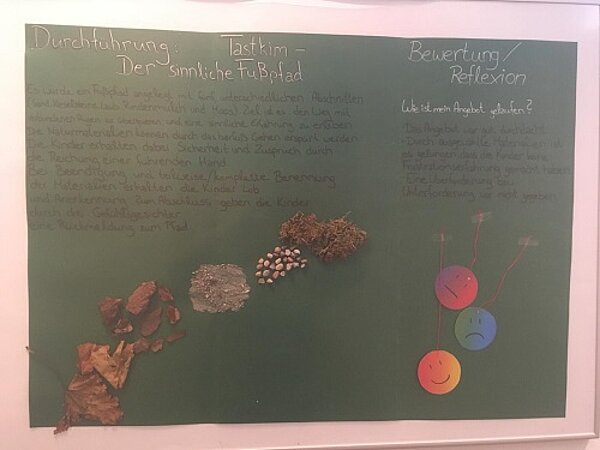 Durchführung: Tastkim –
Der sinnliche Fußpfad
Es wurde ein Fußpfad angelegt mit fünf unterschiedlichen Abschnitten
(Sand, Kieselsteine, Laub, Rindenmulch und Moos). Ziel ist es den Weg mit
verbundenen Augen zu überqueren und eine sinnliche Erfahrung zu erleben.
Die Naturmaterialien können durch das barfuß Gehen erspürt werden.
Die Kinder erhalten dabei Sicherheit und Zuspruch durch
die Reichung einer führenden Hand.
Bei Beendigung und teilweise/komplette Benennung
der Materialien erhalten die Kinder Lob
und Anerkennung. Zum Abschluss geben die Kinder
durch die Gefühlsgesichter
eine Rückmeldung zum Pfad.
Bewertung/
Reflexion
Wie ist mein Angebot gelaufen?
- Das Angebot war gut durchdacht
- Durch ausgewählte Materialien ist
es gelungen dass die Kinder keine
Frustrationserfahrung gemacht haben.
- Eine Überforderung bzw.
Unterforderung war nicht gegeben